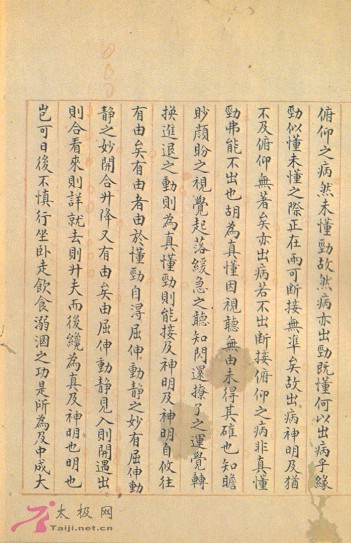 俯仰之病然未懂勁故然病亦出勁既懂何以出病乎緣
勁似懂未懂之際正在兩可斷接無準矣故出病神明及猶
不及俯仰無著矣亦出病若不出斷接俯仰之病非真懂
勁弗能不出也胡為真懂因視聽無由未得其確也知瞻
眇顏盼之視覺起落緩急之聽知閃還撩了之運覺轉
換進退之動則為真懂勁則能接及神明及神明自攸往
有由矣有由者由於懂勁自得屈伸動靜之妙有屈伸動
靜之妙開合升降又有由矣由屈伸動靜見入則開遇出
則合看來則詳就去則升夫而後纔為真及神明也明也
豈可日後不慎行坐卧走飲食溺溷之功是所為及中成大
太极网
Taiji.net.cn